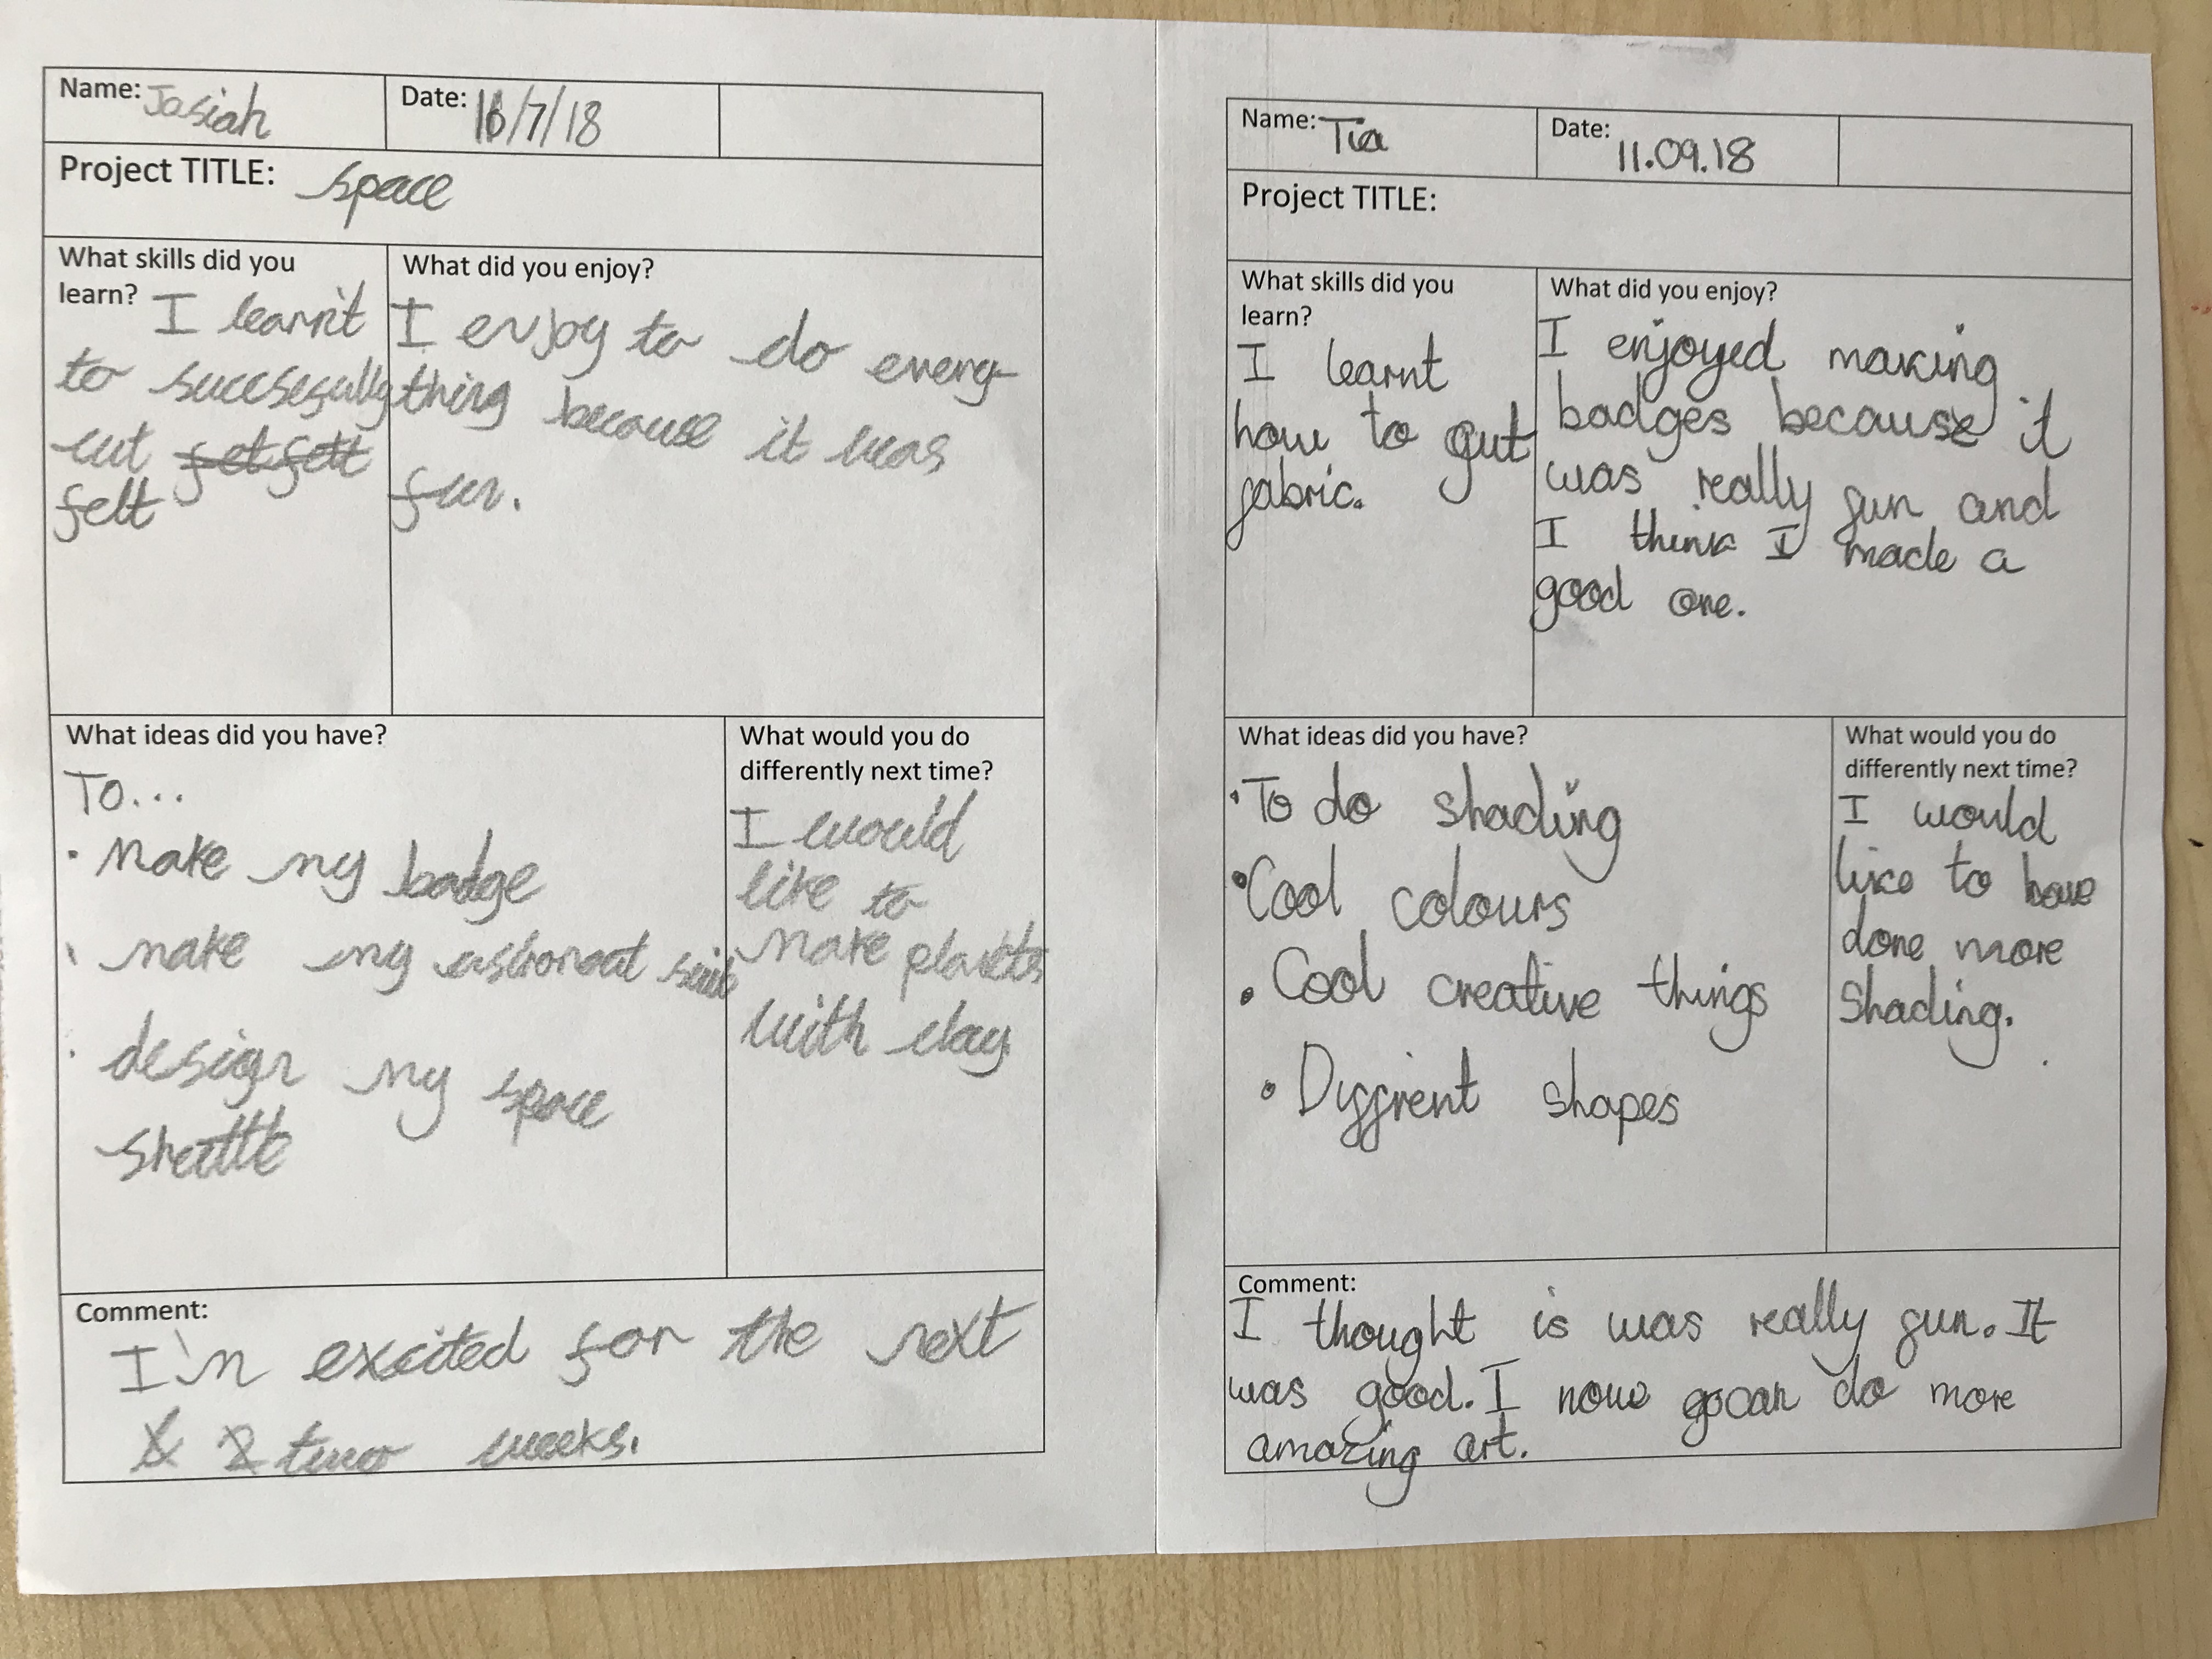 Name: Josiah
Date: 16/7/18
Project TITLE: space
What skills did you
learn? I learn't
to succsesfully
cut fet fett
felt
What did you enjoy?
I enjoy to do every
thing because it was
fun.
What ideas did you have?
To...
· Make my badge
· make my astronaut suit
· design my space
shuttle
What would you do
differently next time?
I would
like to
make planets
with clay
Comment:
I'm excited for the next
two weeks.
Name: Tia
Date: 11.09.18
Project TITLE:
What skills did you
learn?
I learnt
how to cut
fabric.
What did you enjoy?
I enjoyed making
badges because it
was really fun and
I think I made a
good one.
What ideas did you have?
• To do shading
• Cool colours
• Cool creative things
• Diffrent shapes
What would you do
differently next time?
I would
like to have
done more
shading.
Comment:
I thought is was really fun. It
was good. I now can do more
amazing art.